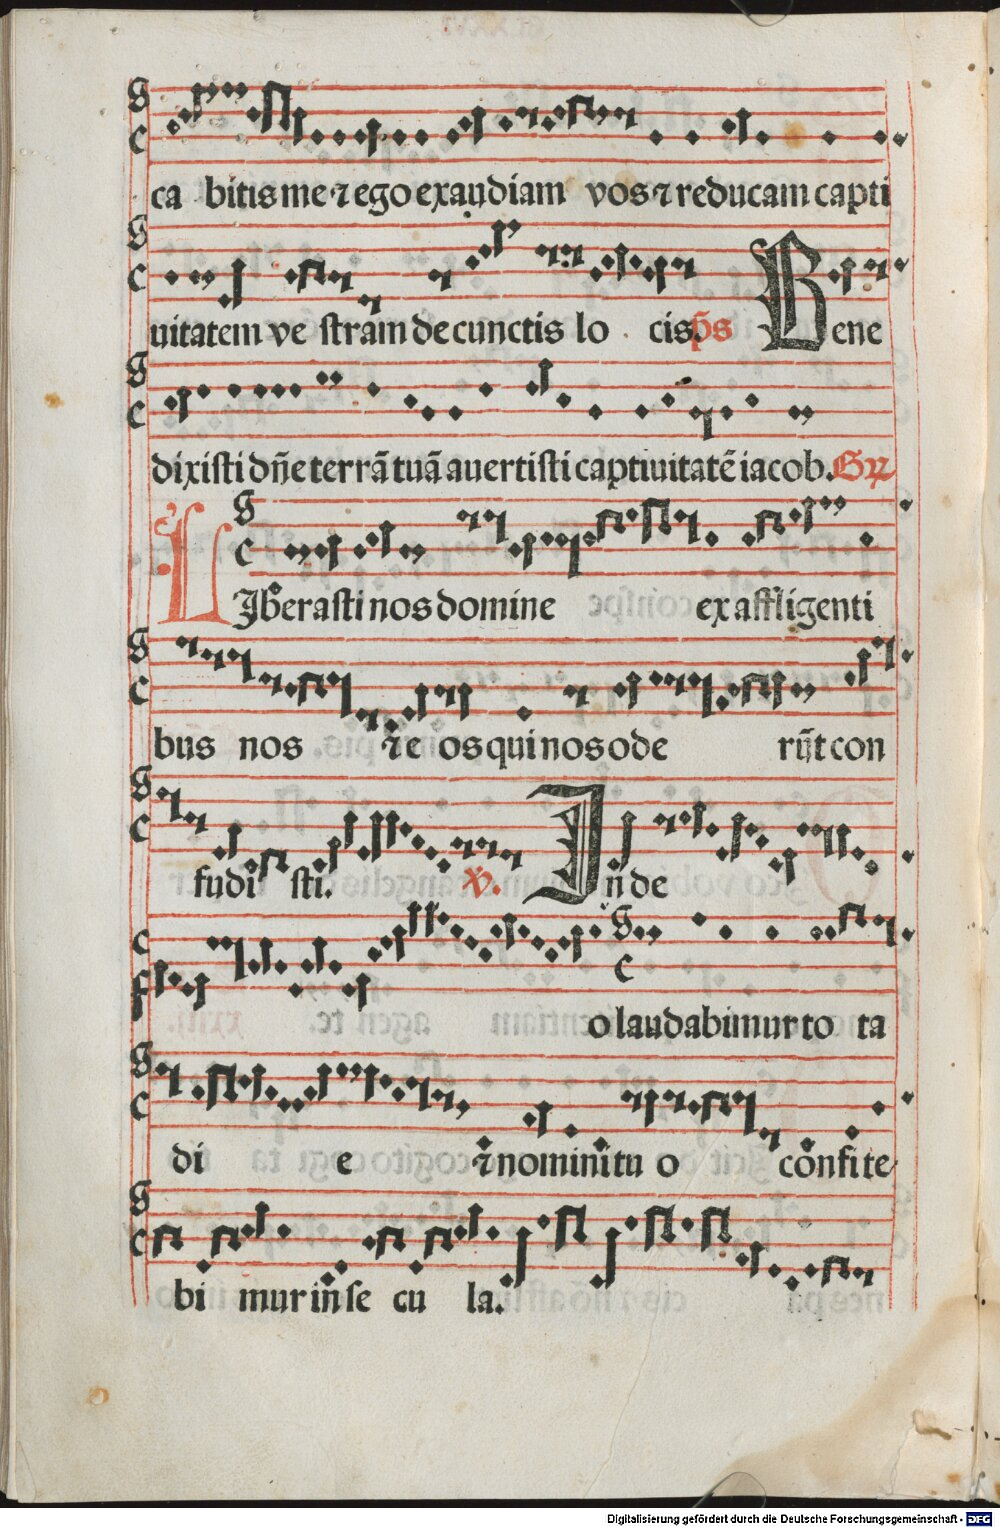 ca bitis me ⁊ ego exaudiam vos ⁊ reducam capti
uitatem ve stram de cunctis lo cis. p̄s Bene
dixisti dn̄e terrā tuā auertisti captiuitatē iacob. Gr̄
LIberasti nos domine ex affligenti
bus nos ⁊ e os qui nos ode rūt con
fudi sti. V. In de
o laudabimur to ta
di e ⁊ nomini tu o confite
bi mur in se cu la.
Digitalisierung gefördert durch die Deutsche Forschungsgemeinschaft - DFG